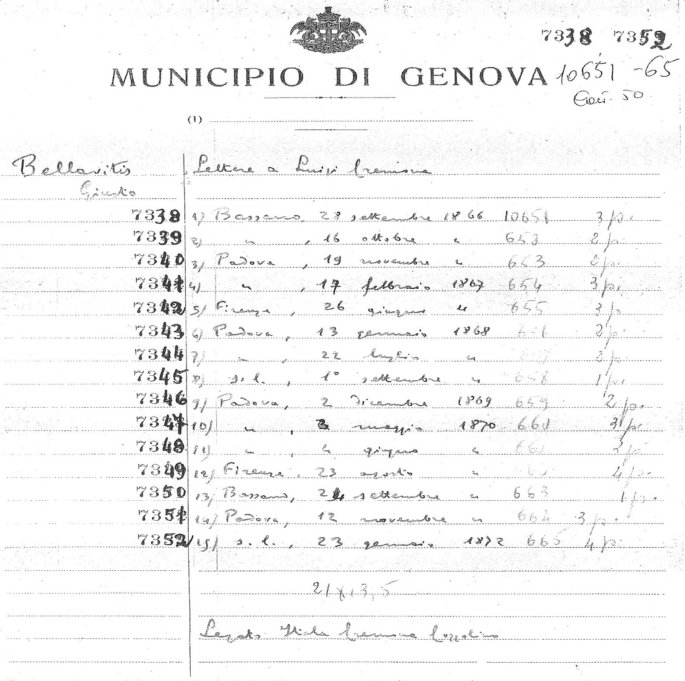 7338 7352
MUNICIPIO DI GENOVA 10651 -65
50
(1)
Bellavitis Lettere a Luigi Cremona
Giusto
7338 1) Bassano, 28 settembre 1866 10651 3 p.
7339 2) " , 16 ottobre " 653 2 p.
7340 3) Padova , 19 novembre " 653 2 p.
7341 4) " , 17 febbraio 1867 654 3 p.
7342 5) Firenze , 26 giugno " 655 3 p.
7343 6) Padova, 13 gennaio 1868 2 p.
7344 7) " , 22 luglio " 2 p.
7345 8) s.l. , 1° settembre " 658 1 p.
7346 9) Padova, 2 dicembre 1869 659 2 p.
7347 10) " , maggio 1870 660 3 p.
7348 11) " , 4 giugno " 2 p.
7349 12) Firenze, 23 agosto " 4 p.
7350 13) Bassano, 24 settembre " 663 1 p.
7351 14) Padova, 12 novembre " 664 3 p.
7352 15) s.l. , 23 gennaio 1872 665 4 p.
21x13,5
Legato Itala Cremona Cozzolino